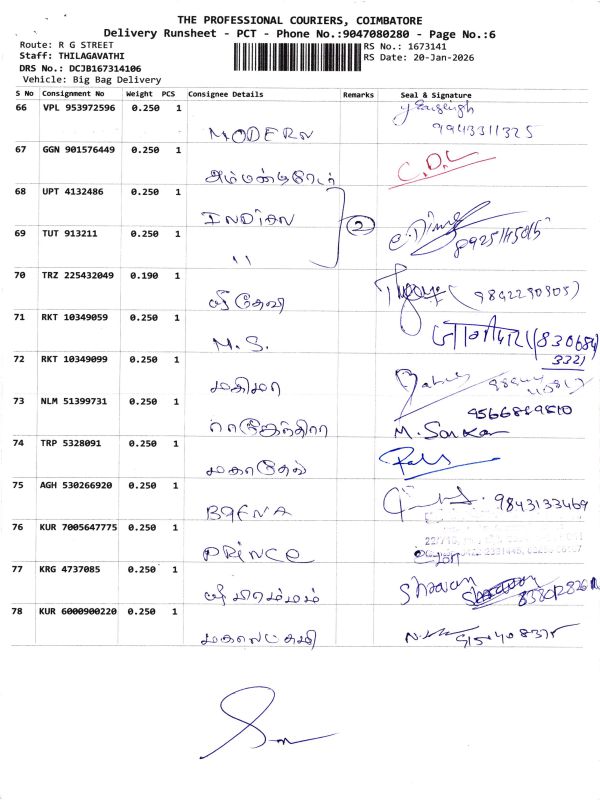 THE PROFESSIONAL COURIERS, COIMBATORE
Delivery Runsheet - PCT - Phone No.:9047080280 - Page No.:6
Route: R G STREET
Staff: THILAGAVATHI
DRS No.: DCJB167314106
Vehicle: Big Bag Delivery
RS No.: 1673141
RS Date: 20-Jan-2026
S No Consignment No Weight PCS Consignee Details Remarks Seal & Signature
66 VPL 953972596 0.250 1
MODERN 9943311325
67 GGN 901576449 0.250 1
C.D.L
68 UPT 4132486 0.250 1
INDIAN 2
69 TUT 913211 0.250 1
"
70 TRZ 225432049 0.190 1
ஸ்ரீ தேவி
71 RKT 10349059 0.250 1
M.S. (830684
3321
72 RKT 10349099 0.250 1
மகிமா
73 NLM 51399731 0.250 1
ராஜேந்திரா M. Sankar
74 TRP 5328091 0.250 1
75 AGH 530266920 0.250 1
9843133469
76 KUR 7005647775 0.250 1
PRINCE
77 KRG 4737085 0.250 1
Shravan
78 KUR 6000900220 0.250 1
மகாலட்சுமி